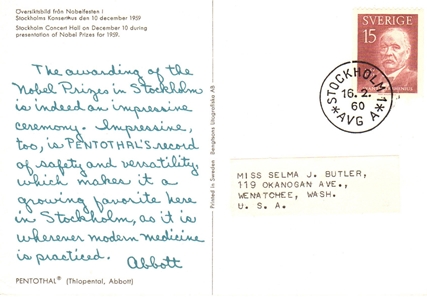 Översiktsbild från Nobelfesten i
Stockholms Konserthus den 10 december 1959
Stockholm Concert Hall on December 10 during
presentation of Nobel Prizes for 1959.
The awarding of the
Nobel Prizes in Stockholm
is indeed an impressive
ceremony. Impressive,
too, is PENTOTHAL'S record
of safety and versatility,
which makes it a
growing favorite here
in Stockholm, as it is
wherever modern medicine
is practiced.
Abbott
PENTOTHAL® (Thiopental, Abbott)
Printed in Sweden Bengtsons Litografiska AB
SVERIGE
15
STOCKHOLM 1
16.2.
60
*AVG A*
MISS SELMA J. BUTLER,
119 OKANOGAN AVE.,
WENATCHEE, WASH.
U. S. A.